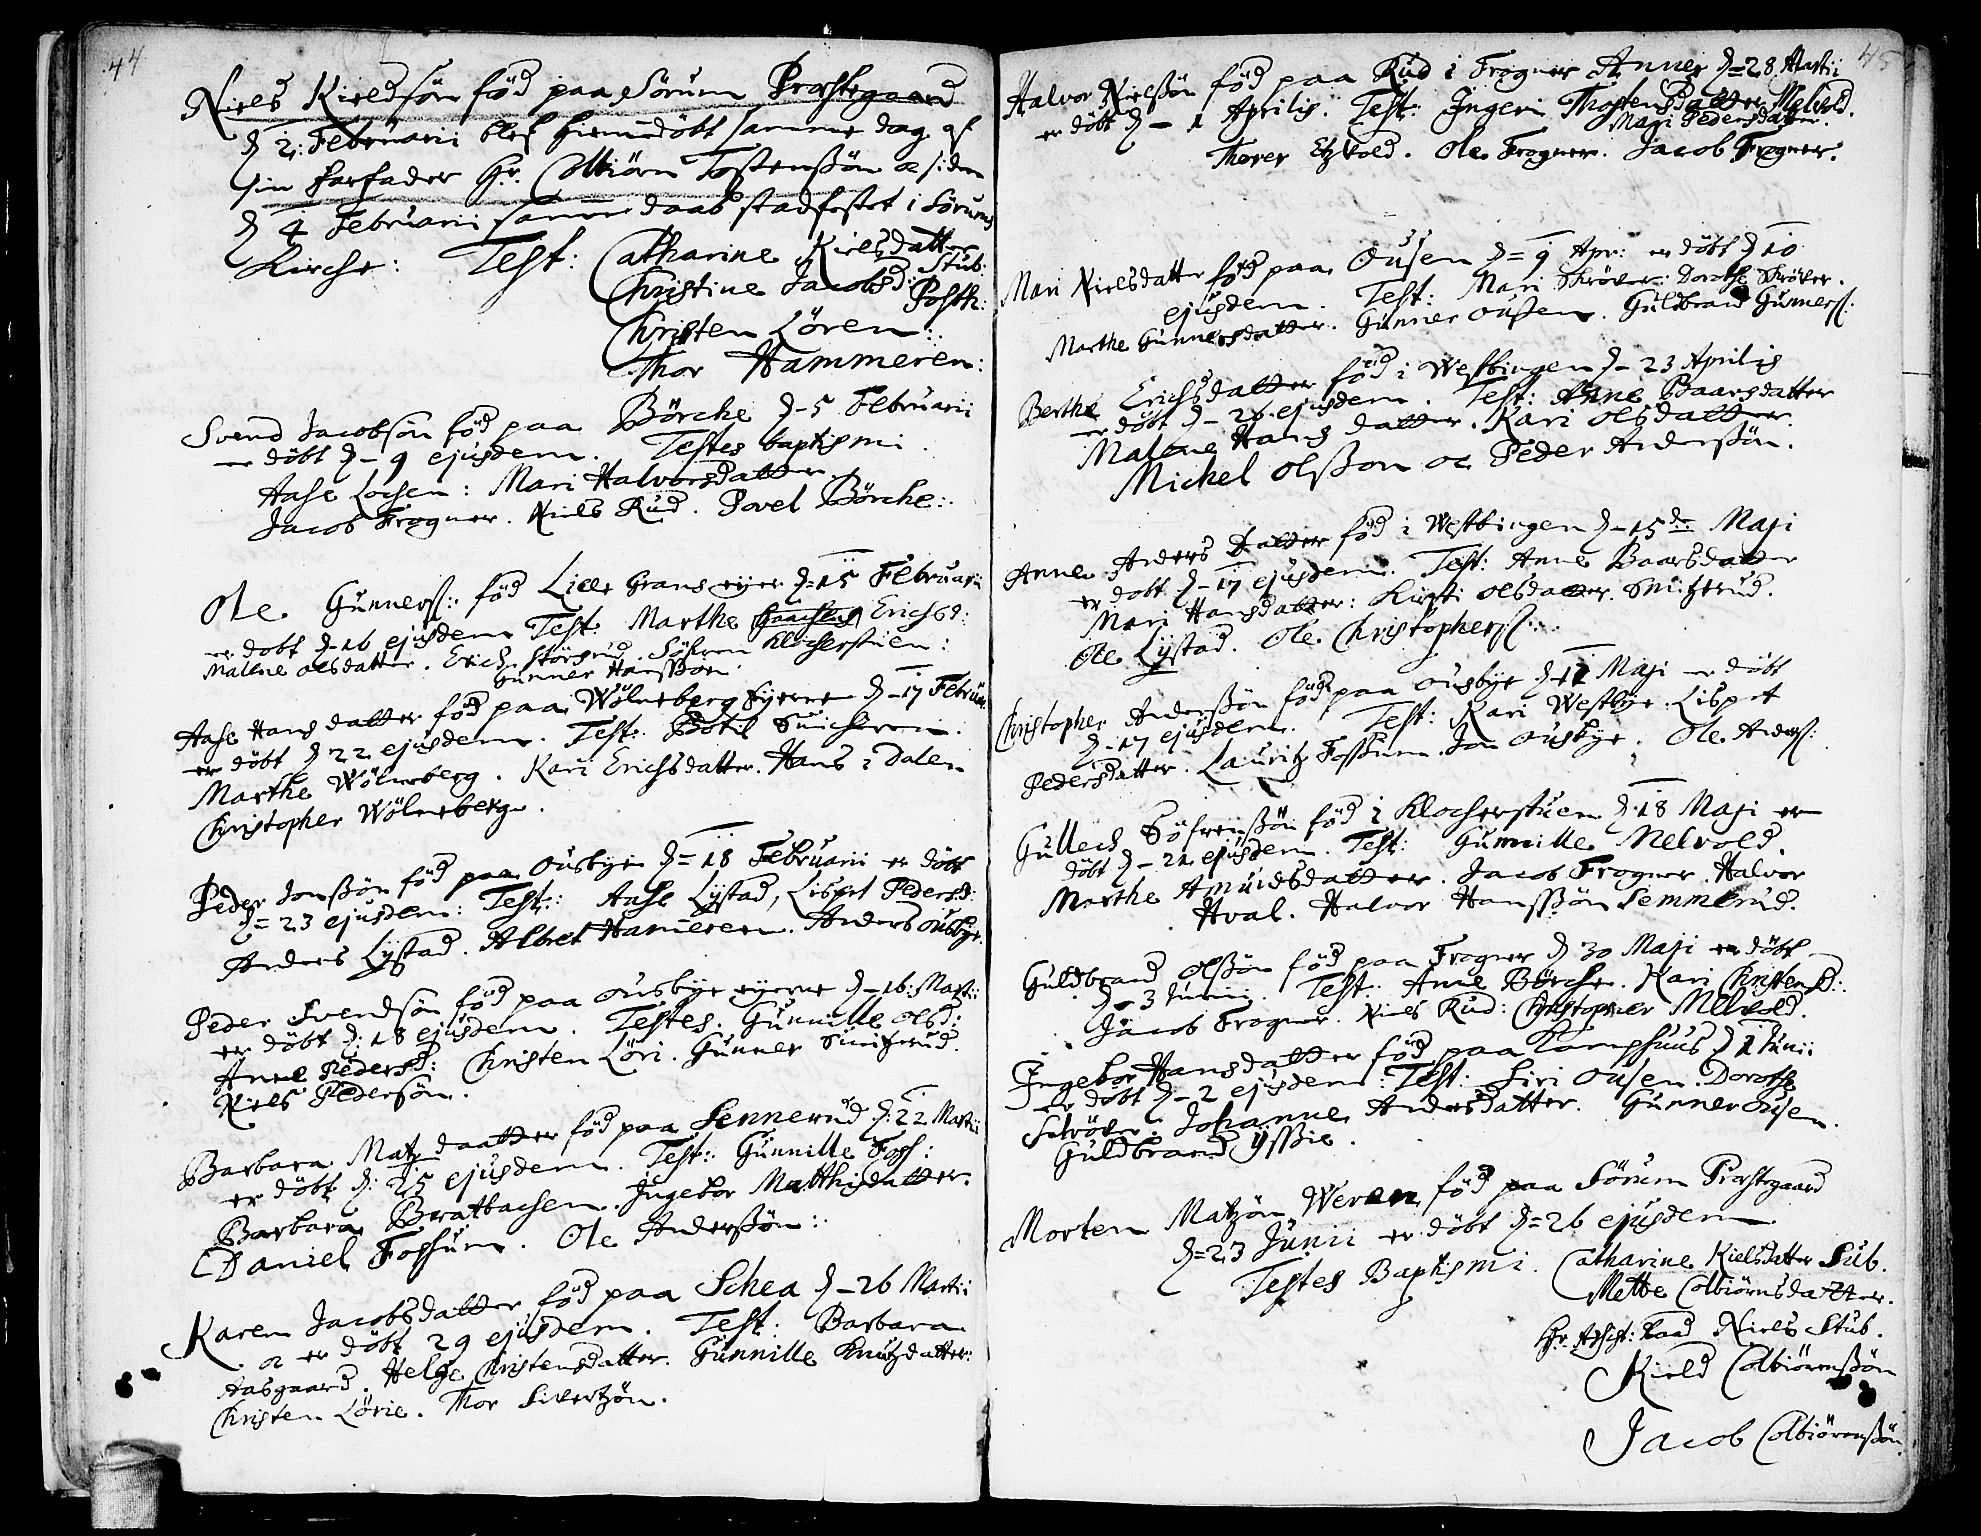 44
Niels Kieldsön föd paa Sörum Præstegaard
d 2: Februarii blef hiemmedöbt samme dag af
sin farfader Hr. Colbiörn Tostenssön oc siden
d 4 Februarii samme daab stadfestet i Sörums
Kirche: Test: Catharine Kielsdatter
Stub:
Christine Jacobsd: Posth:
Christen Lören:
Thor Hammeren:
Svend Jacobsön föd paa Börche d-5 Februarii
er döbt d-9 ejusdem. Testes baptismi.
Aase Lochen: Mari Halvorsdatter
Jacob Frogner. Niels Rud. Povel Börche:
Ole Gunners: föd Lille Grans eyer d=15 Februarii
er döbt d-16 ejusdem Test: Marthe Erichsd:
Malene Olsdatter. Erich Störsrud. Söfren Klocherstuen:
Gunner Hanssön
Aase Hans datter föd paa Wölneberg Eyerne d-17 Februarii
er döbt d 22 ejusdem. Test: Bodil
Marthe Wölneberg. Kari Erichsdatter. Hans i Dalen
Christopher Wölneberg.
Peder Jonssön föd paa Ousbye d=18 Februarii er döbt
d=23 ejusdem: Test: Aase Lystad, Lispet Pedersd:
Anders Lystad. Albret Hameren. Anders Ousbye.
Peder Svendsön föd paa Ousbye eyerne d-16: Martii
er döbt d: 18 ejusdem. Testes. Gunnille Olsd:
Anne Pedersd: Christen Löri. Gunner Smitzrud.
Niels Pedersön.
Barbara Matz daatter föd paa Sennerud d: 22 Martii
er döbt d: 25 ejusdem. Test: Gunnille Foss:
Barbara Bratbachen. Ingebor Matthisdatter.
Daniel Fossum. Ole Anderssön:
Karen Jacobsdatter föd paa Schea d-26 Martii
oc er döbt 29 ejusdem. Test: Barbara
Aasgaard. Helge Christensdatter. Gunnille Knutzdatter:
Christen Lörie. Thor Sivertzön.
45
Halvor Nielssön föd paa Rud i Frogner Annex d=28 Martii
er döbt d-1 Aprilis. Test: Ingeri Thostensdatter Melvold.
Mari Pedersdatter.
Thorer Etzvold. Ole Frogner. Jacob Frogner.
Mari Nielsdatter föd paa Ousen d=9 Apr: er döbt d 10
ejusdem. Test: Mari Skröver. Dorothe Skröver.
Marthe Gunnersdatter. Gunner Ousen. Guldbrand Gunners:
Berthe Erichsdatter föd i Westbingen d-23 Aprilis
er döbt d-26 ejusdem. Test: Anne Baarsdatter
Malene Hans datter. Kari Olsdatter.
Michel Olsson oc Peder Anderssön.
Anne Anders Datter föd i Westbingen d-15de Maji
er döbt d-17 ejusdem. Test: Anne Baarsdatter
Mari Hansdatter: Kirsti Olsdatter. Smitzrud.
Ole Lystad. Ole Christophers:
Christopher Anderssön föd paa Ousbye d 12 Maji er döbt
d-17 ejusdem. Test: Kari Westbye. Lispet
Pedersdatter. Lauritz Fossum. Jon Ousbye. Ole Anders:
Gullech Söfrenssön föd i Klocherstuen d.18 Maji er
döbt d-21 ejusdem. Test: Gunnille Melvold.
Marthe Amundsdatter. Jacob Frogner. Halvor
Hval. Halvor Hanssön Semmerud.
Guldbrand Olssön föd paa Frogner d 30 Maji er döbt
d-3 Junij. Test: Anne Börche. Kari Christensd:
Jacob Frogner. Niels Rud: Christopher Melvold.
Ingebor Hansdatter föd paa Kamphuus d 1 Junii
er döbt d-2 ejusdem: Test: Siri Ousen. Dorothe
Schröver. Johanne Andersdatter. Gunner Ousen.
Guldbrand Yssie.
Morten Matzön Weren föd paa Sörum Præstegaard
d=23 Junii er döbt d=26 ejusdem
Testes Baptismi. Catharine Kielsdatter Stub.
Mette Colbiörnsdatter.
Hr. Assist: Raad Niels Stub.
Kield Colbiörenssön
Jacob Colbiörenssön.